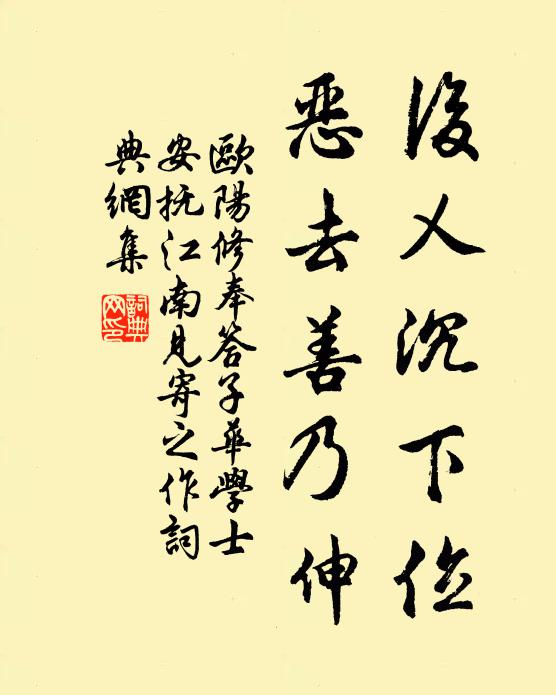 俊乂沉下位
惡去善乃伸
歐陽修奉答子華學士
安抚江南見寄之作詞
典網集
詞典
网印